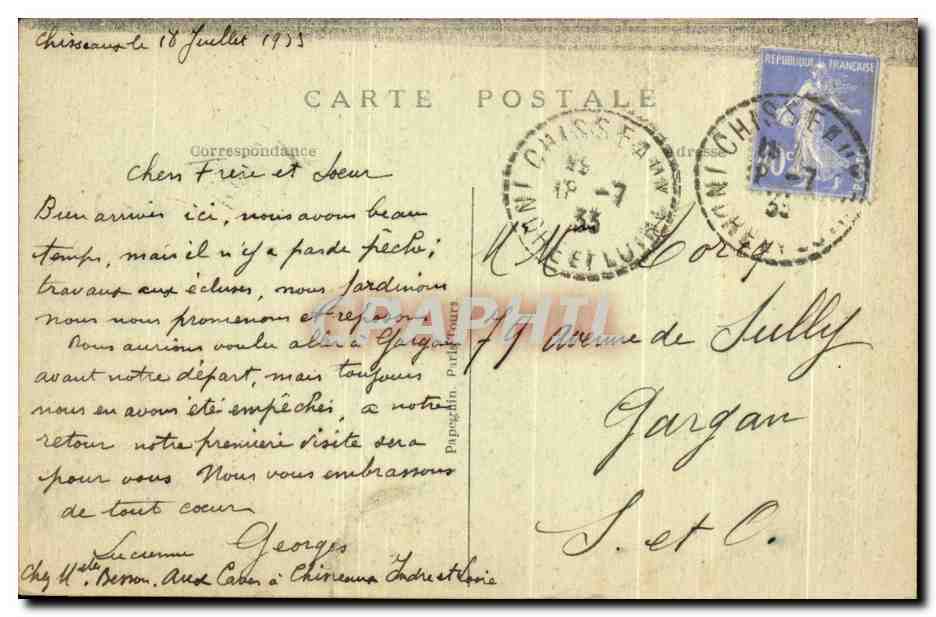 Chisseaux le 18 Juillet 1933
REPUBLIQUE FRANÇAISE
CARTE POSTALE
CHISSEAUX
18 -7
33
INDRE ET LOIRE
CHISSEAUX
18 -7
33
INDRE ET LOIRE
Correspondance
Adresse
Chers Frère et Soeur
Bien arrivés ici, nous avons beau
temps, mais il n'y a pas de pêche;
travaux aux écluses, nous Jardinons
nous nous promenons et reposons
Nous aurions voulu aller à Gargan
avant notre départ, mais toujours
nous en avons été empêchés, a notre
retour notre première visite sera
pour vous. Nous vous embrassons
de tout coeur
Lucienne Georges
Chez Besson. Aux Caves à Chisseaux Indre et Loire
Papeghin. Paris-Tours
M Mme
79 Avenue de Sully
Gargan
S. et O.
CPAPHIL